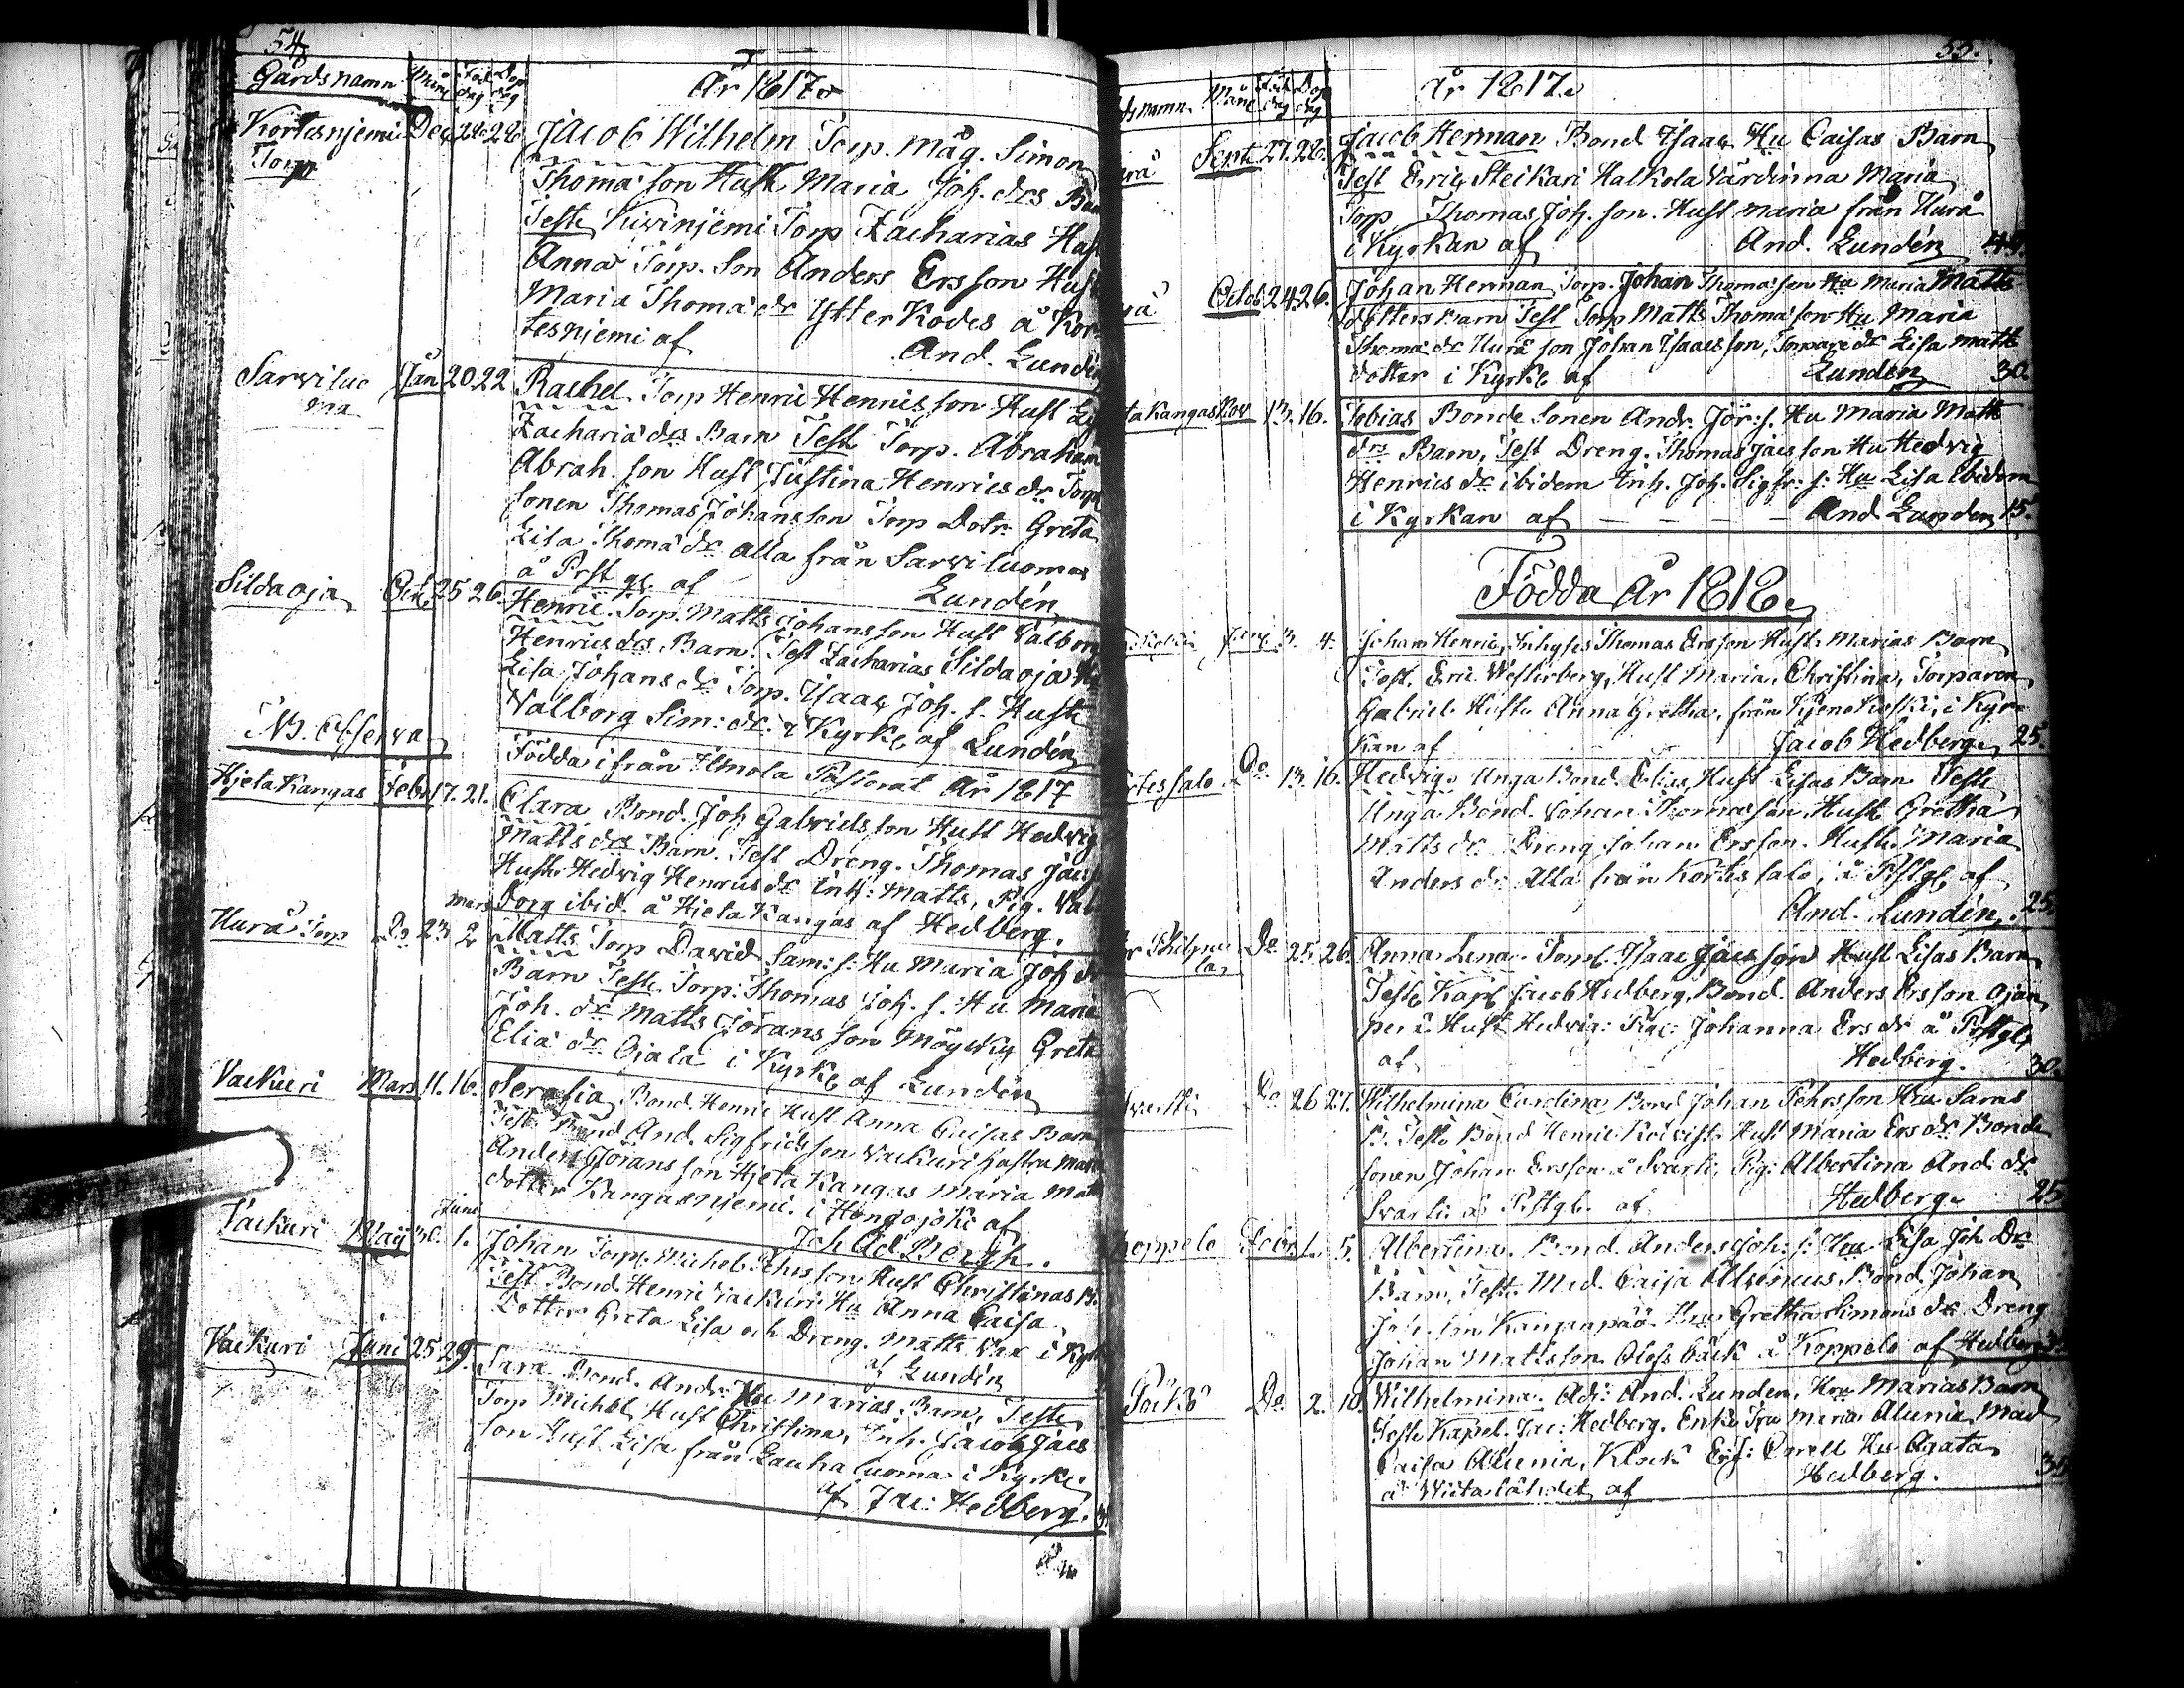 54
Gårds namn Mån Föd dag Dop dag År 1817
Kortesnjemi Dec 26 28 Jacob Wilhelm Torp. måg. Simon
Torp Thomasson Hust Maria Joh. drs
Test Kivinjemi Torp Zacharias Hust
Anna Torp. Son Anders Ersson Hust
Maria Thomä dr Ytter Kodes å Kor
tesnjemi af And. Lundén
Sarviluo Jan 20 22 Rachel Torp Henric Henricsson Hust
ma Zachariä drs Barn Test Torp. Abraham
Abrah. son Hust Justina Henrics dr Torp
Sonen Thomas Johansson Torp Dotr Greta
Lisa Thomä dr alla från Sarviluoma
å Prst gl. af Lundén
Sildaoja Oct 25 26. Henric Torp. Matts Johansson Hust Valborg
Henrics drs Barn. Test Zacharias Sildaoja Hu
Lisa Johans dr Torp. Isaac Joh. s. Hust
Valborg Sim: dr. i Kyrk. af Lundén
NB. Observa Födda ifrån Ilmola Pastorat År 1817
Hjeta Kangas Febr 17. 21. Clara Bond. Joh Gabrielsson Hust Hedvig
Matts drs Barn. Test Dreng. Thomas Jacs
Hustr Hedvig Henrics dr Inh: Matts, Pig. Val
borg ibid. å Hjeta Kangas af Hedberg.
mars
Hurå Torp Do 23 2 Matts Torp David Sam: s: Hu Maria Joh dr
Barn Test. Torp: Thomas Joh. s: Hu Maria
Joh. dr Matts Joransson Greta
Eliä dr Ojala i Kyrk. af Lundén
Vaekuri Mars 11. 16. Serafia Bond. Henric Hust Anna Caisas Barn
Test Bond And. Sigfridsson Vaekuri hustru
Anders Joransson Hjeta Kangas Maria Matts
dotter Kangasnjemi. i Hongojoki af
Joh Ad Bergh.
Juni
Vaekuri Maij 30. 1. Johan Torp. Michel Pehrsson Hust Christinas B.
Test Bond Henric Vaekuri Hu Anna Caisa
Dotter Greta Lisa och Dreng. Matts i Kyrk
af Lundén
Vaekuri Juni 25 29. Sara Bond. Andr: Hu Marias Barn, Test
Torp Michel Hust Christina, Inh. Jacob Jacs
son Hust Lisa från Lauhaluoma i Kyrk.
af Jac: Hedberg.
55.
namn Mån Föd dag Dop dag År 1817.
Sept 27. 28. Jacob Herman Bond Isaac Hu Caisas Barn
Test Eric Steikari Halkola Värdinna Maria
Torp Thomas Joh. son. Hust Maria från Hurå
i Kyrkan af And. Lundén
Octob 24 26. Johan Herman Torp. Johan Thomasson Hu Maria Matts
dotters Barn Test Torp Matts Thomasson Hu Maria
Thomä dr Hurå Son Johan Isaacsson, Torpare dr Lisa Matts
dotter i Kyrk. af Lundén 30.
ta Kangas Nov 13. 16. Tobias Bonde Sonen Andr. Jör: s. Hu Maria Matts
drs Barn, Test Dreng. Thomas Jacsson Hu Hedvig
Henrics dr ibidem Inh. Joh. Sigfr: s: Hu Lisa ibidem
i Kyrkan af And Lundén 15.
Födda År 1818
3. 4. Johan Henric, Inhyses Thomas Ersson Hust. Marias Barn
Test. Eric Westerberg, Hust Maria, Christina, Torparen
Gabriel Hustr Anna Gretha, från i Kyr
kan af Jacob Hedberg 25.
tessalo Do 13. 16. Hedvig Unga Bond. Elias Hust Lisas Barn Test
Unga Bond. Johan Thomasson Hust Gretha
Matts dr. Dreng Johan Ersson Hustr. Maria
Anders dr Alla från Kortessalo, å Pstgl af
And. Lundén. 25.
Do 25 26. Anna Lena Torp. Isaac Jacsson Hust Lisas Barn
Test. Kapl Jacob Hedberg, Bond. Anders Ersson Ojan
perä Hust Hedvig: Pig: Johanna Ers dr å Pstgl
af Hedberg. 30.
Do 26 27. Wilhelmina Carolina Bond Johan Pehrsson Hu Saras
B. Test. Bond Henric Hust Maria Ers dr Bonde
sonen Johan Ersson å Svarti, Pig: Albertina And. dr
Svarti å Pstgl. af Hedberg. 25
oppelo Febr 1. 5. Albertina Bond. Anders Joh: s: Hu Lisa Joh Drs
Barn, Test. Mad. Caisa Bond. Johan
Joh. son Kanganpää Hu Gretha Simons dr Dreng
Johan Mattsson Olofsbäck å Koppelo af Hedberg
Do 2. 10. Wilhelmina Adj: And. Lundén, Hu Marias Barn
Test. Kapel. Jac: Hedberg. Enke Fru Maria Alcenia Mad
Caisa Alcenia, Hu Agata
å af Hedberg.